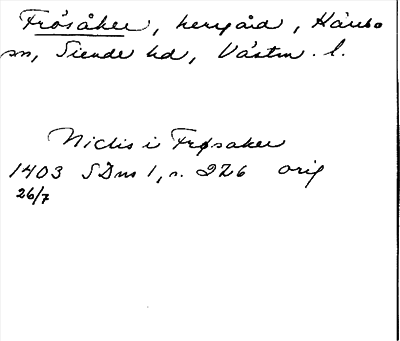 Frösåker, herrgård, Kärrbo
sn, Siende hd, Västm. l.
Niclis i Frøsaker
1403 SDns 1, s. 226 orig
26/7